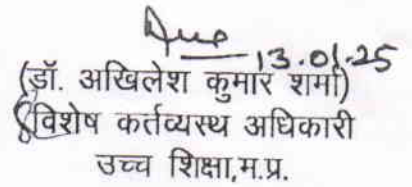 13.01.25
(डॉ. अखिलेश कुमार शर्मा)
विशेष कर्तव्यस्थ अधिकारी
उच्च शिक्षा,म.प्र.